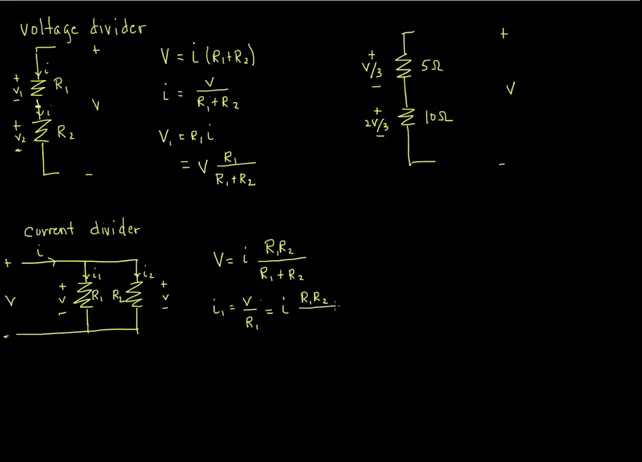 voltage divider
+
i
+
v₁
-
R₁
i
+
v₂
-
R₂
V
-
V = i (R₁+R₂)
i = V / R₁+R₂
V₁ = R₁ i
= V R₁ / R₁+R₂
+
V/3
-
5Ω
+
2V/3
-
10Ω
+
V
-
current divider
i
+
V
-
i₁
+
V
-
R₁
i₂
R₂
+
V
-
V = i R₁R₂ / R₁+R₂
i₁ = V / R₁ = i R₁R₂